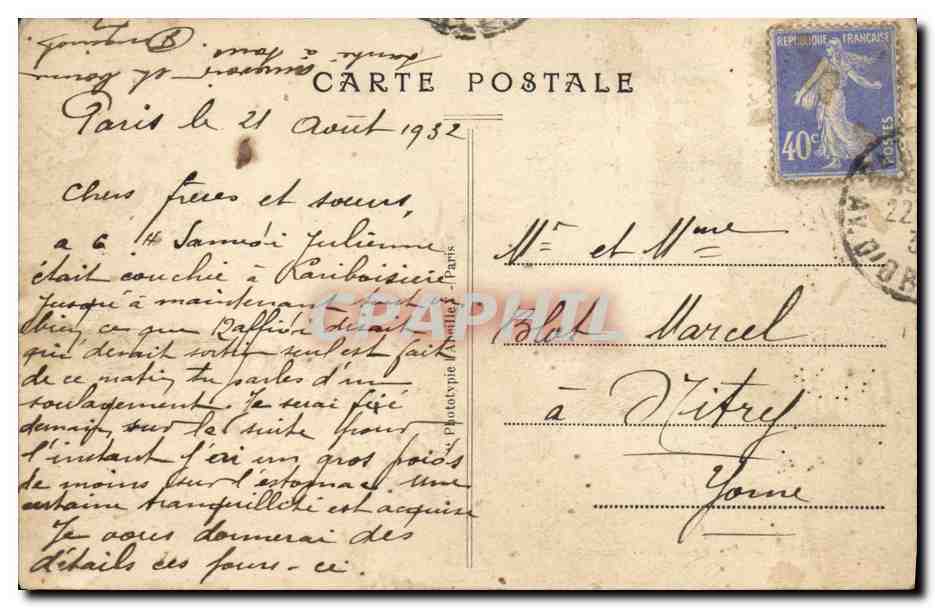 CARTE POSTALE
Paris le 21 Août 1932
Chers frères et soeurs,
a 6 H Samedi Julienne
était couchée à Lariboisière
jusqu'à maintenant tout va
bien, ce que Daffiôn disait
qui devait sortir seul est fait
de ce matin, tu parles d'un
soulagement. Je serai fixé
demain, sur la suite pour
l'instant j'ai un gros poids
de moins sur l'estomac une
certaine tranquillité est acquise
Je vous donnerai des
détails ces jours-ci.
santé à tous
Phototypie d'Areuil - Paris
REPUBLIQUE FRANÇAISE
40c
POSTES
22
Mr et Mme
Blot Marcel
à Nitry
Yonne
CRAPHIL